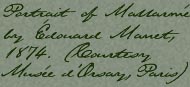 Portrait of Mallarmé
by Edouard Manet,
1874. (Courtesy
Musée d'Orsay, Paris)